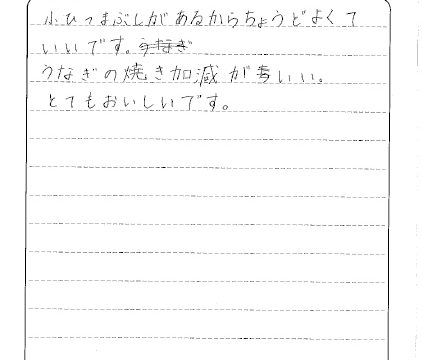 小ひつまぶしがあるからちょうどよくて
いいです。
うなぎの焼き加減がいい。
とてもおいしいです。